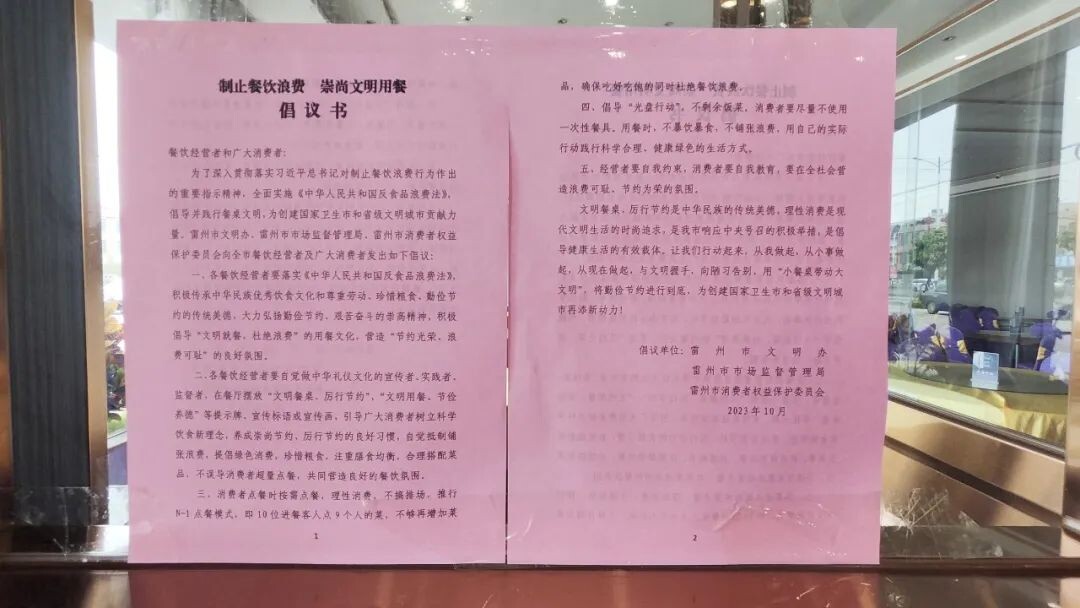 制止餐饮浪费 崇尚文明用餐
倡议书
餐饮经营者和广大消费者：
为了深入贯彻落实习近平总书记对制止餐饮浪费行为作出
的重要指示精神，全面实施《中华人民共和国反食品浪费法》，
倡导并践行餐桌文明，为创建国家卫生市和省级文明城市贡献力
量。雷州市文明办、雷州市市场监督管理局、雷州市消费者权益
保护委员会向全市餐饮经营者及广大消费者发出如下倡议：
一、各餐饮经营者要落实《中华人民共和国反食品浪费法》，
积极传承中华民族优秀饮食文化和尊重劳动、珍惜粮食、勤俭节
约的传统美德，大力弘扬勤俭节约、艰苦奋斗的崇高精神，积极
倡导“文明就餐，杜绝浪费”的用餐文化，营造“节约光荣、浪
费可耻”的良好氛围。
二、各餐饮经营者要自觉做中华礼仪文化的宣传者、实践者、
监督者，在餐厅摆放“文明餐桌、厉行节约”，“文明用餐、节俭
养德”等提示牌、宣传标语或宣传画，引导广大消费者树立科学
饮食新理念，养成崇尚节约、厉行节约的良好习惯，自觉抵制铺
张浪费，提倡绿色消费，珍惜粮食，注重膳食均衡，合理搭配菜
品，不误导消费者超量点餐，共同营造良好的餐饮氛围。
三、消费者点餐时按需点餐，理性消费，不搞排场，推行
N-1点餐模式，即10位进餐客人点9个人的菜，不够再增加菜
1
品，确保吃好吃饱的同时杜绝餐饮浪费。
四、倡导“光盘行动”，不剩余饭菜，消费者要尽量不使用
一次性餐具。用餐时，不暴饮暴食，不铺张浪费，用自己的实际
行动践行科学合理、健康绿色的生活方式。
五、经营者要自我约束，消费者要自我教育，要在全社会营
造浪费可耻、节约为荣的氛围。
文明餐桌、厉行节约是中华民族的传统美德，理性消费是现
代文明生活的时尚追求，是我市响应中央号召的积极举措，是倡
导健康生活的有效载体。让我们行动起来，从我做起，从小事做
起，从现在做起，与文明握手，向陋习告别，用“小餐桌带动大
文明”，将勤俭节约进行到底，为创建国家卫生市和省级文明城
市再添新动力！
倡议单位：雷州市文明办
雷州市市场监督管理局
雷州市消费者权益保护委员会
2023年10月
2